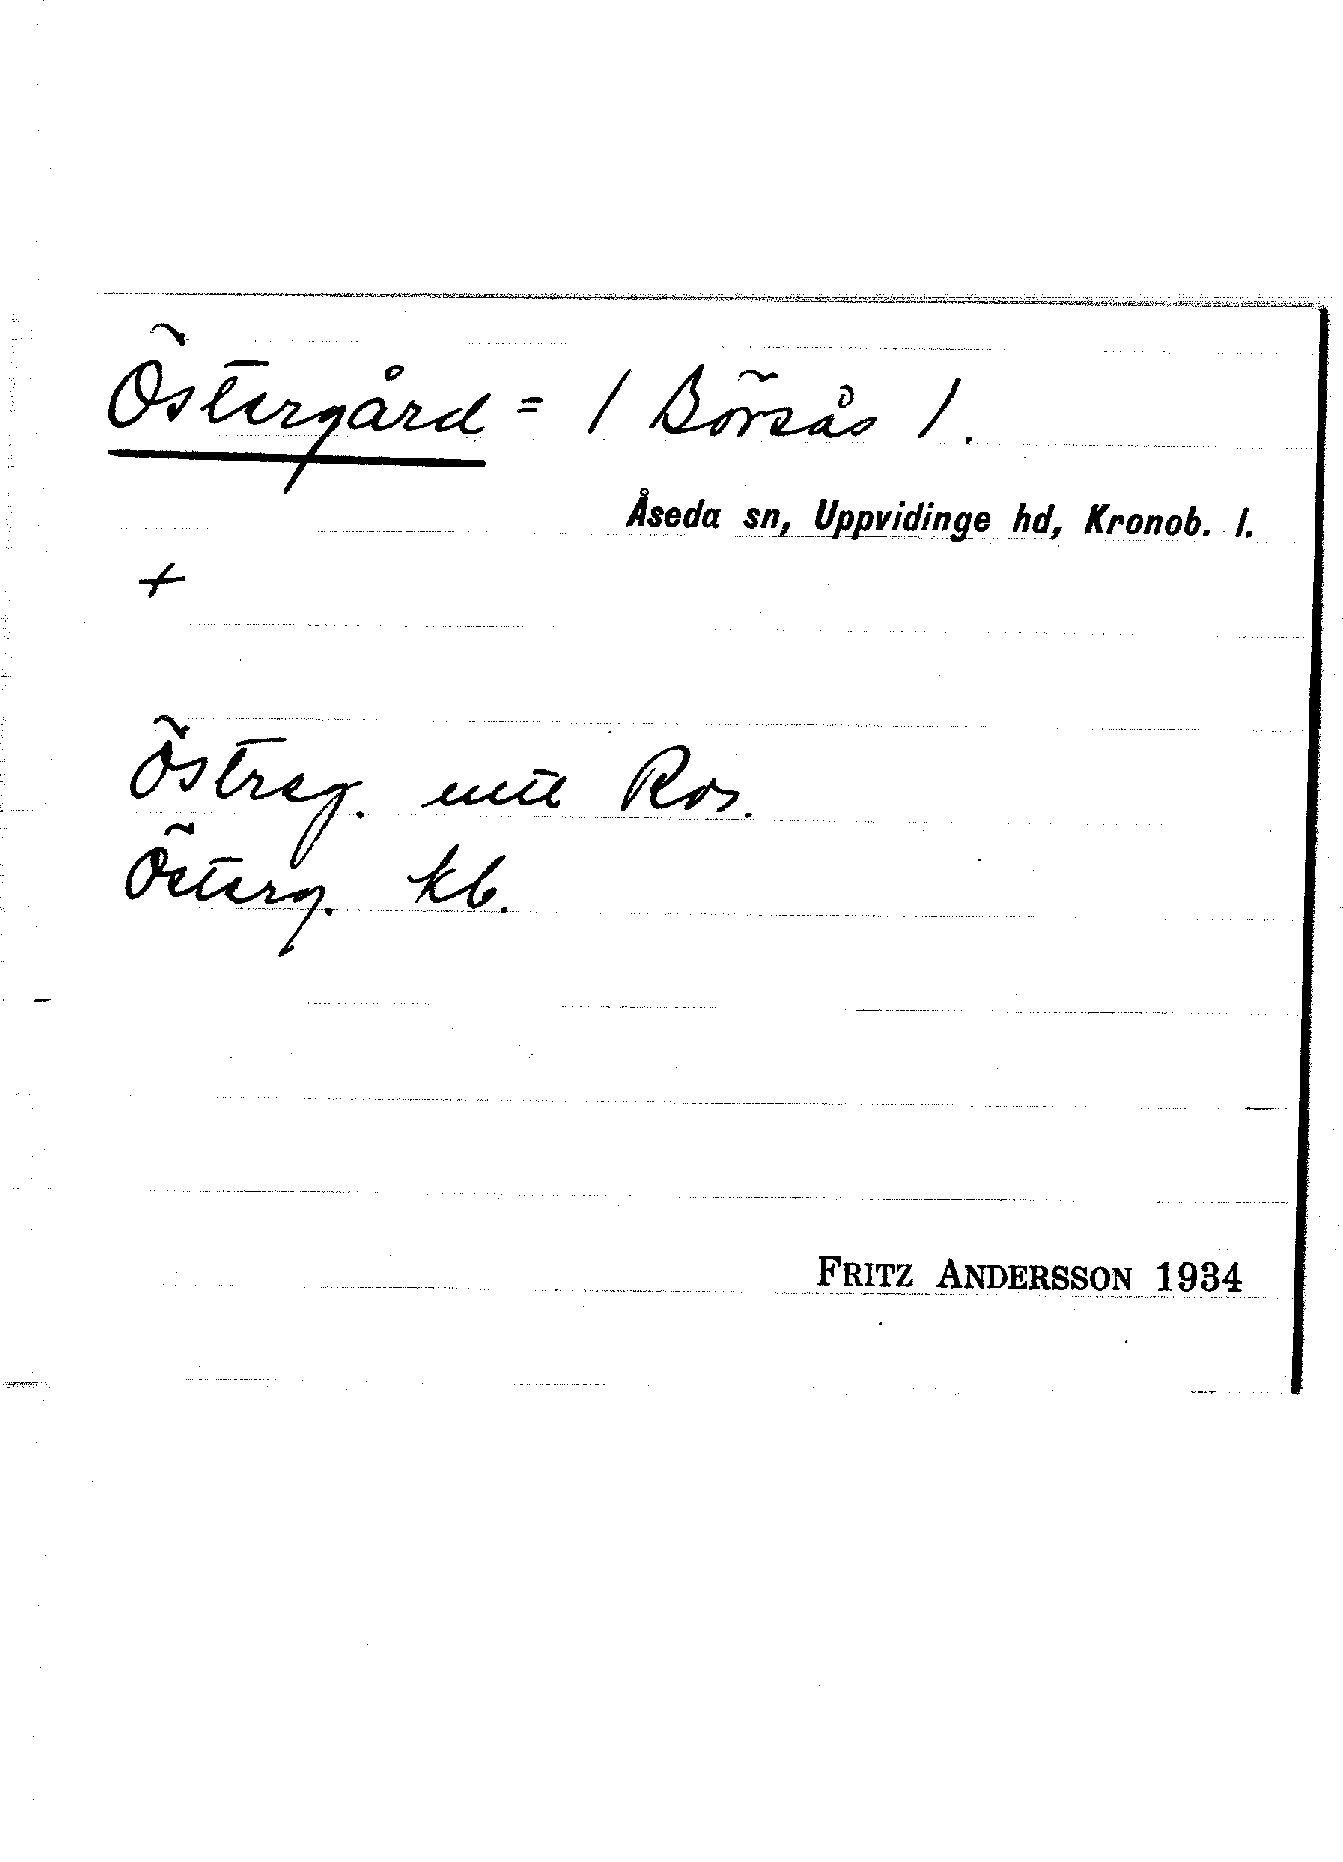 Östergård = / Börsås /.
Åseda sn, Uppvidinge hd, Kronob. l.
+
Östreg. utt Ros.
Österg. kb.
FRITZ ANDERSSON 1934